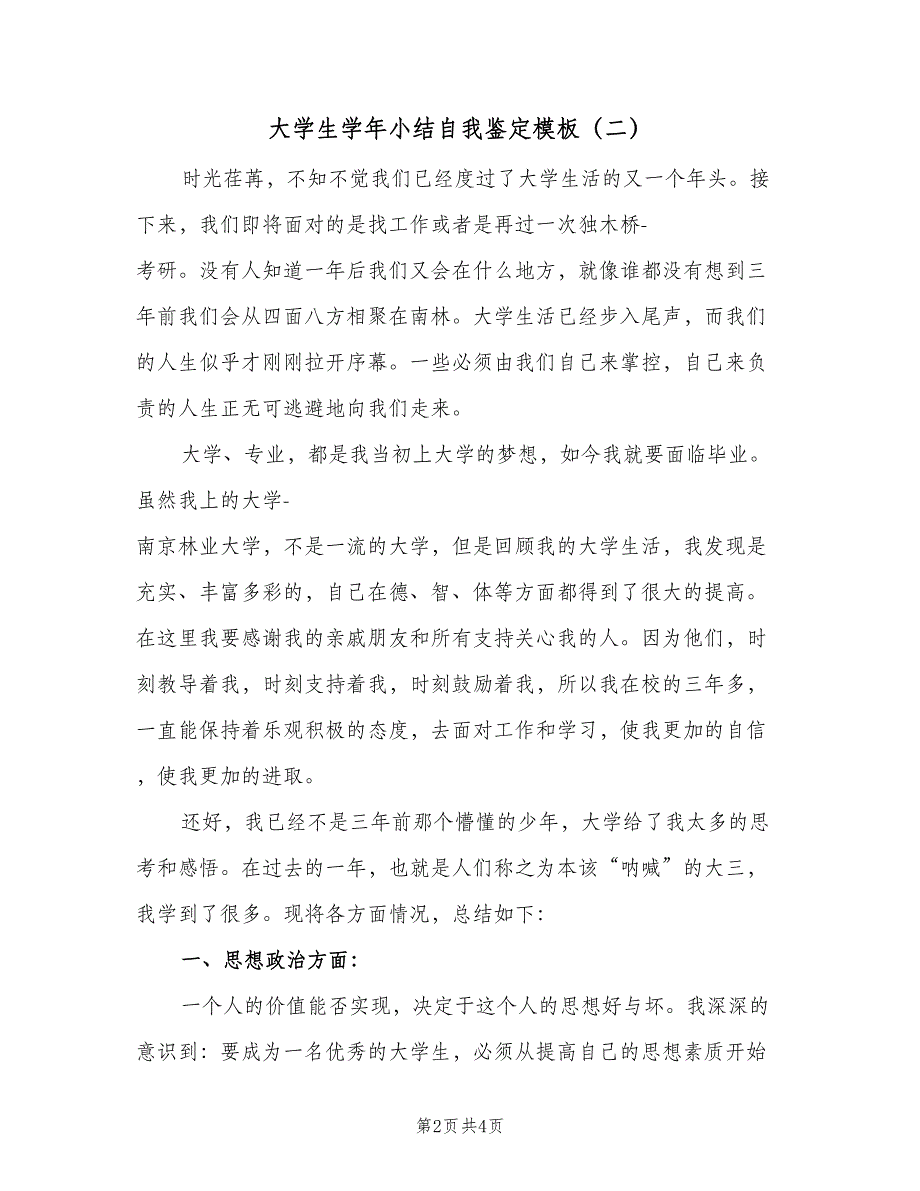 大学生学年小结自我鉴定模板（二）
时光荏苒，不知不觉我们已经度过了大学生活的又一个年头。接
下来，我们即将面对的是找工作或者是再过一次独木桥-
考研。没有人知道一年后我们又会在什么地方，就像谁都没有想到三
年前我们会从四面八方相聚在南林。大学生活已经步入尾声，而我们
的人生似乎才刚刚拉开序幕。一些必须由我们自己来掌控，自己来负
责的人生正无可逃避地向我们走来。
大学、专业，都是我当初上大学的梦想，如今我就要面临毕业。
虽然我上的大学-
南京林业大学，不是一流的大学，但是回顾我的大学生活，我发现是
充实、丰富多彩的，自己在德、智、体等方面都得到了很大的提高。
在这里我要感谢我的亲戚朋友和所有支持关心我的人。因为他们，时
刻教导着我，时刻支持着我，时刻鼓励着我，所以我在校的三年多，
一直能保持着乐观积极的态度，去面对工作和学习，使我更加的自信
，使我更加的进取。
还好，我已经不是三年前那个懵懂的少年，大学给了我太多的思
考和感悟。在过去的一年，也就是人们称之为本该“呐喊”的大三，
我学到了很多。现将各方面情况，总结如下：
一、思想政治方面：
一个人的价值能否实现，决定于这个人的思想好与坏。我深深的
意识到：要成为一名优秀的大学生，必须从提高自己的思想素质开始
第2页 共4页